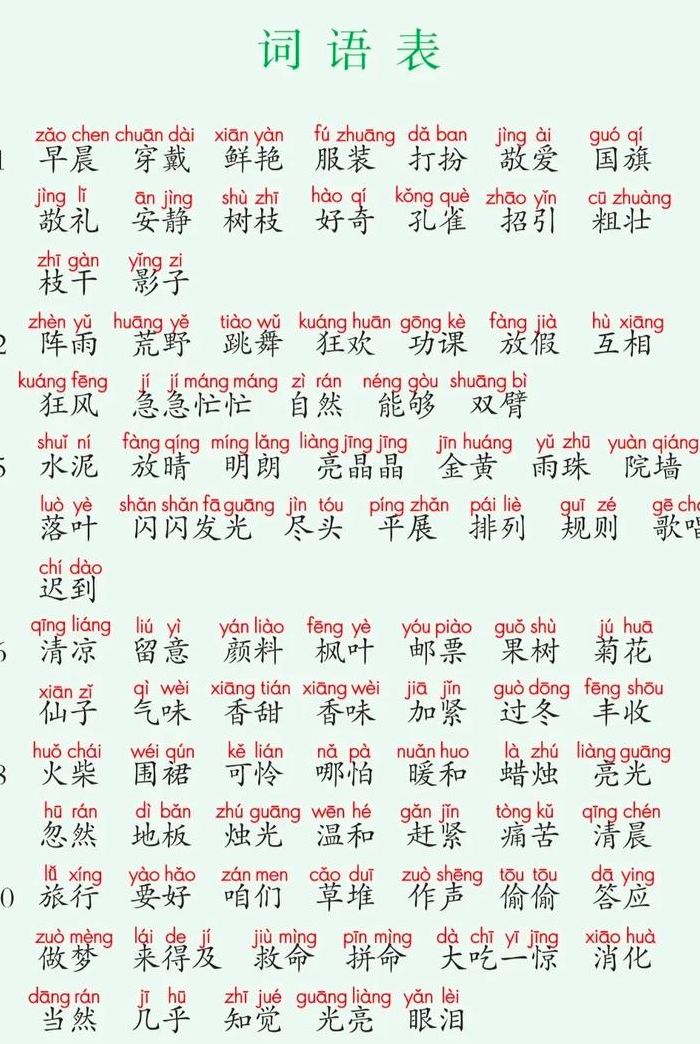 词语表
zǎo chen chuān dài xiān yàn fú zhuāng dǎ ban jìng ài guó qí
1 早晨 穿戴 鲜艳 服装 打扮 敬爱 国旗
jìng lǐ ān jìng shù zhī hào qí kǒng què zhāo yǐn cū zhuàng
敬礼 安静 树枝 好奇 孔雀 招引 粗壮
zhī gàn yǐng zi
枝干 影子
zhèn yǔ huāng yě tiào wǔ kuáng huān gōng kè fàng jià hù xiāng
2 阵雨 荒野 跳舞 狂欢 功课 放假 互相
kuáng fēng jí jí máng máng zì rán néng gòu shuāng bì
狂风 急急忙忙 自然 能够 双臂
shuǐ ní fàng qíng míng lǎng liàng jīng jīng jīn huáng yǔ zhū yuàn qiáng
5 水泥 放晴 明朗 亮晶晶 金黄 雨珠 院墙
luò yè shǎn shǎn fā guāng jìn tóu píng zhǎn pái liè guī zé gē
落叶 闪闪发光 尽头 平展 排列 规则 歌唱
chí dào
迟到
qīng liáng liú yì yán liào fēng yè yóu piào guǒ shù jú huā
6 清凉 留意 颜料 枫叶 邮票 果树 菊花
xiān zǐ qì wèi xiāng tián xiāng wèi jiā jǐn guò dōng fēng shōu
仙子 气味 香甜 香味 加紧 过冬 丰收
huǒ chái wéi qún kě lián nǎ pà nuǎn huo là zhú liàng guāng
8 火柴 围裙 可怜 哪怕 暖和 蜡烛 亮光
hū rán dì bǎn zhú guāng wēn hé gǎn jǐn tòng kǔ qīng chén
忽然 地板 烛光 温和 赶紧 痛苦 清晨
lǚ xíng yào hǎo zán men cǎo duī zuò shēng tōu tōu dā ying
0 旅行 要好 咱们 草堆 作声 偷偷 答应
zuò mèng lái de jí jiù mìng pīn mìng dà chī yī jīng xiāo huà
做梦 来得及 救命 拼命 大吃一惊 消化
dāng rán jī hū zhī jué guāng liàng yǎn lèi
当然 几乎 知觉 光亮 眼泪